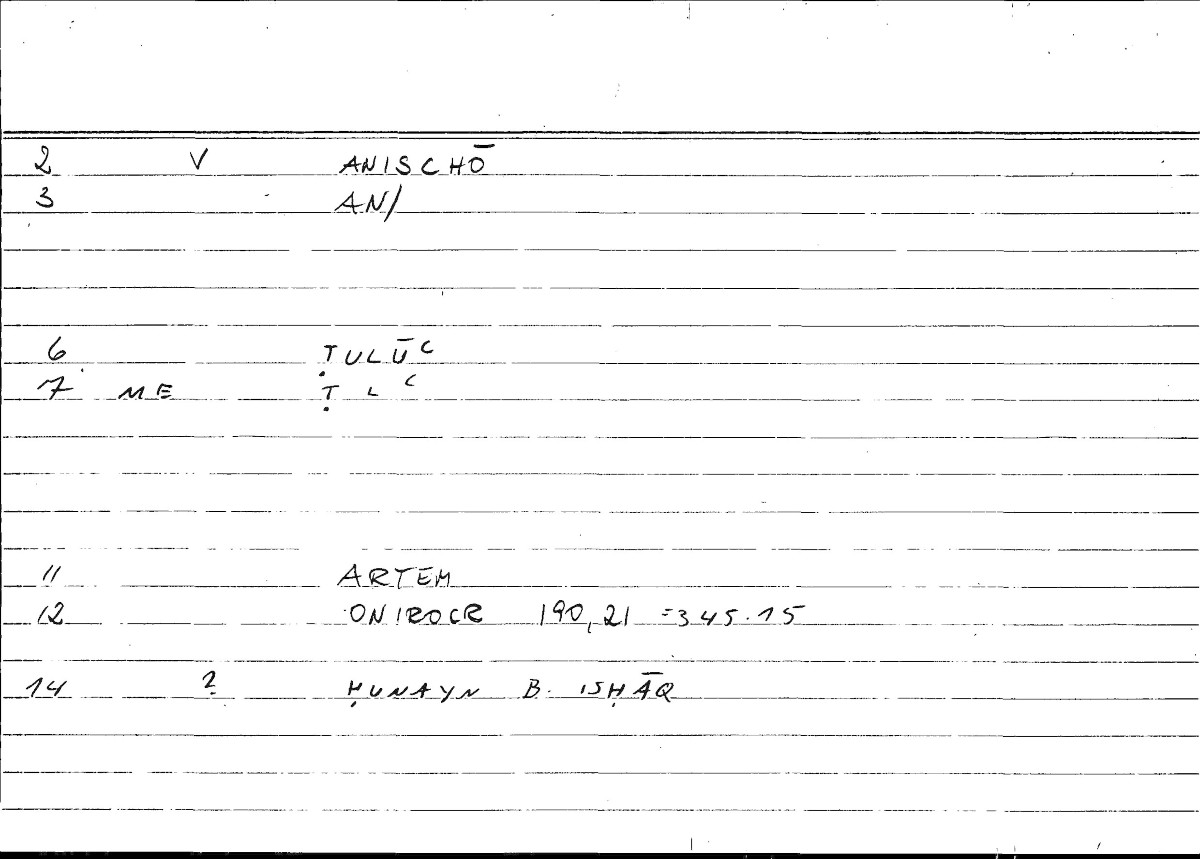 2 V ANISCHŌ
3 AN/
6 ṬULŪC
7 ME ṬLC
11 ARTEM
12 ONIROCR 190,21 =345.15
14 ? ḤUNAYN B. ISḤĀQ